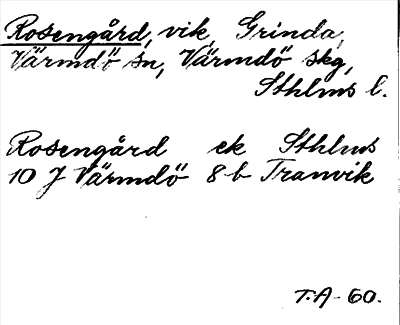 Rosengård, vik, Grinda,
Värmdö sn, Värmdö skg,
Sthlms l.
Rosengård ek Sthlms
10 J Värmdö 8 b Tranvik
T.A-60.